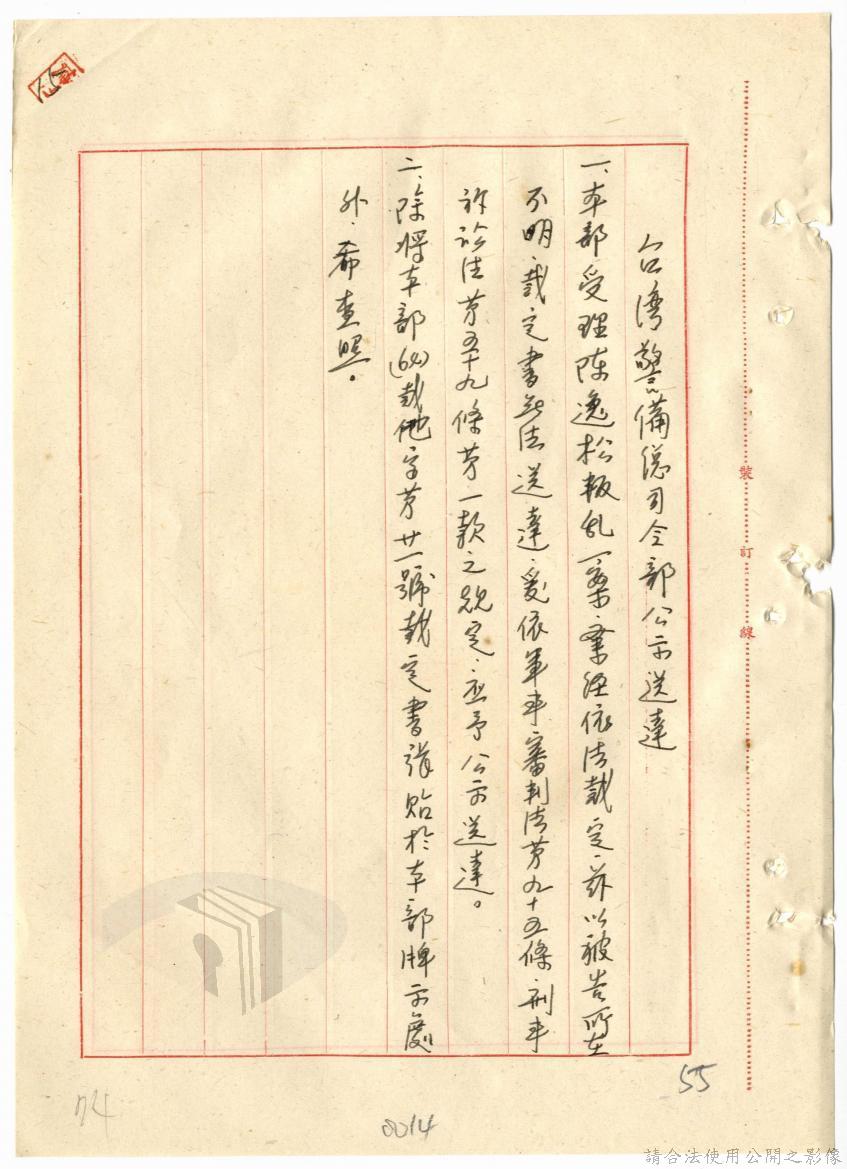 台湾警備總司令部公示送達
一、本部受理陳逸松叛乱一案、業經依法裁定、茲以被告所在
不明、裁定書無法送達、爰依軍事審判法第九十五條、刑事
訴訟法第五十九條第一款之規定、應予公示送達。
二、除將本部(64)裁他字第廿一號裁定書張貼於本部牌示處
外、希查照。
裝
訂
線
55
74
0014
請合法使用公開之影像